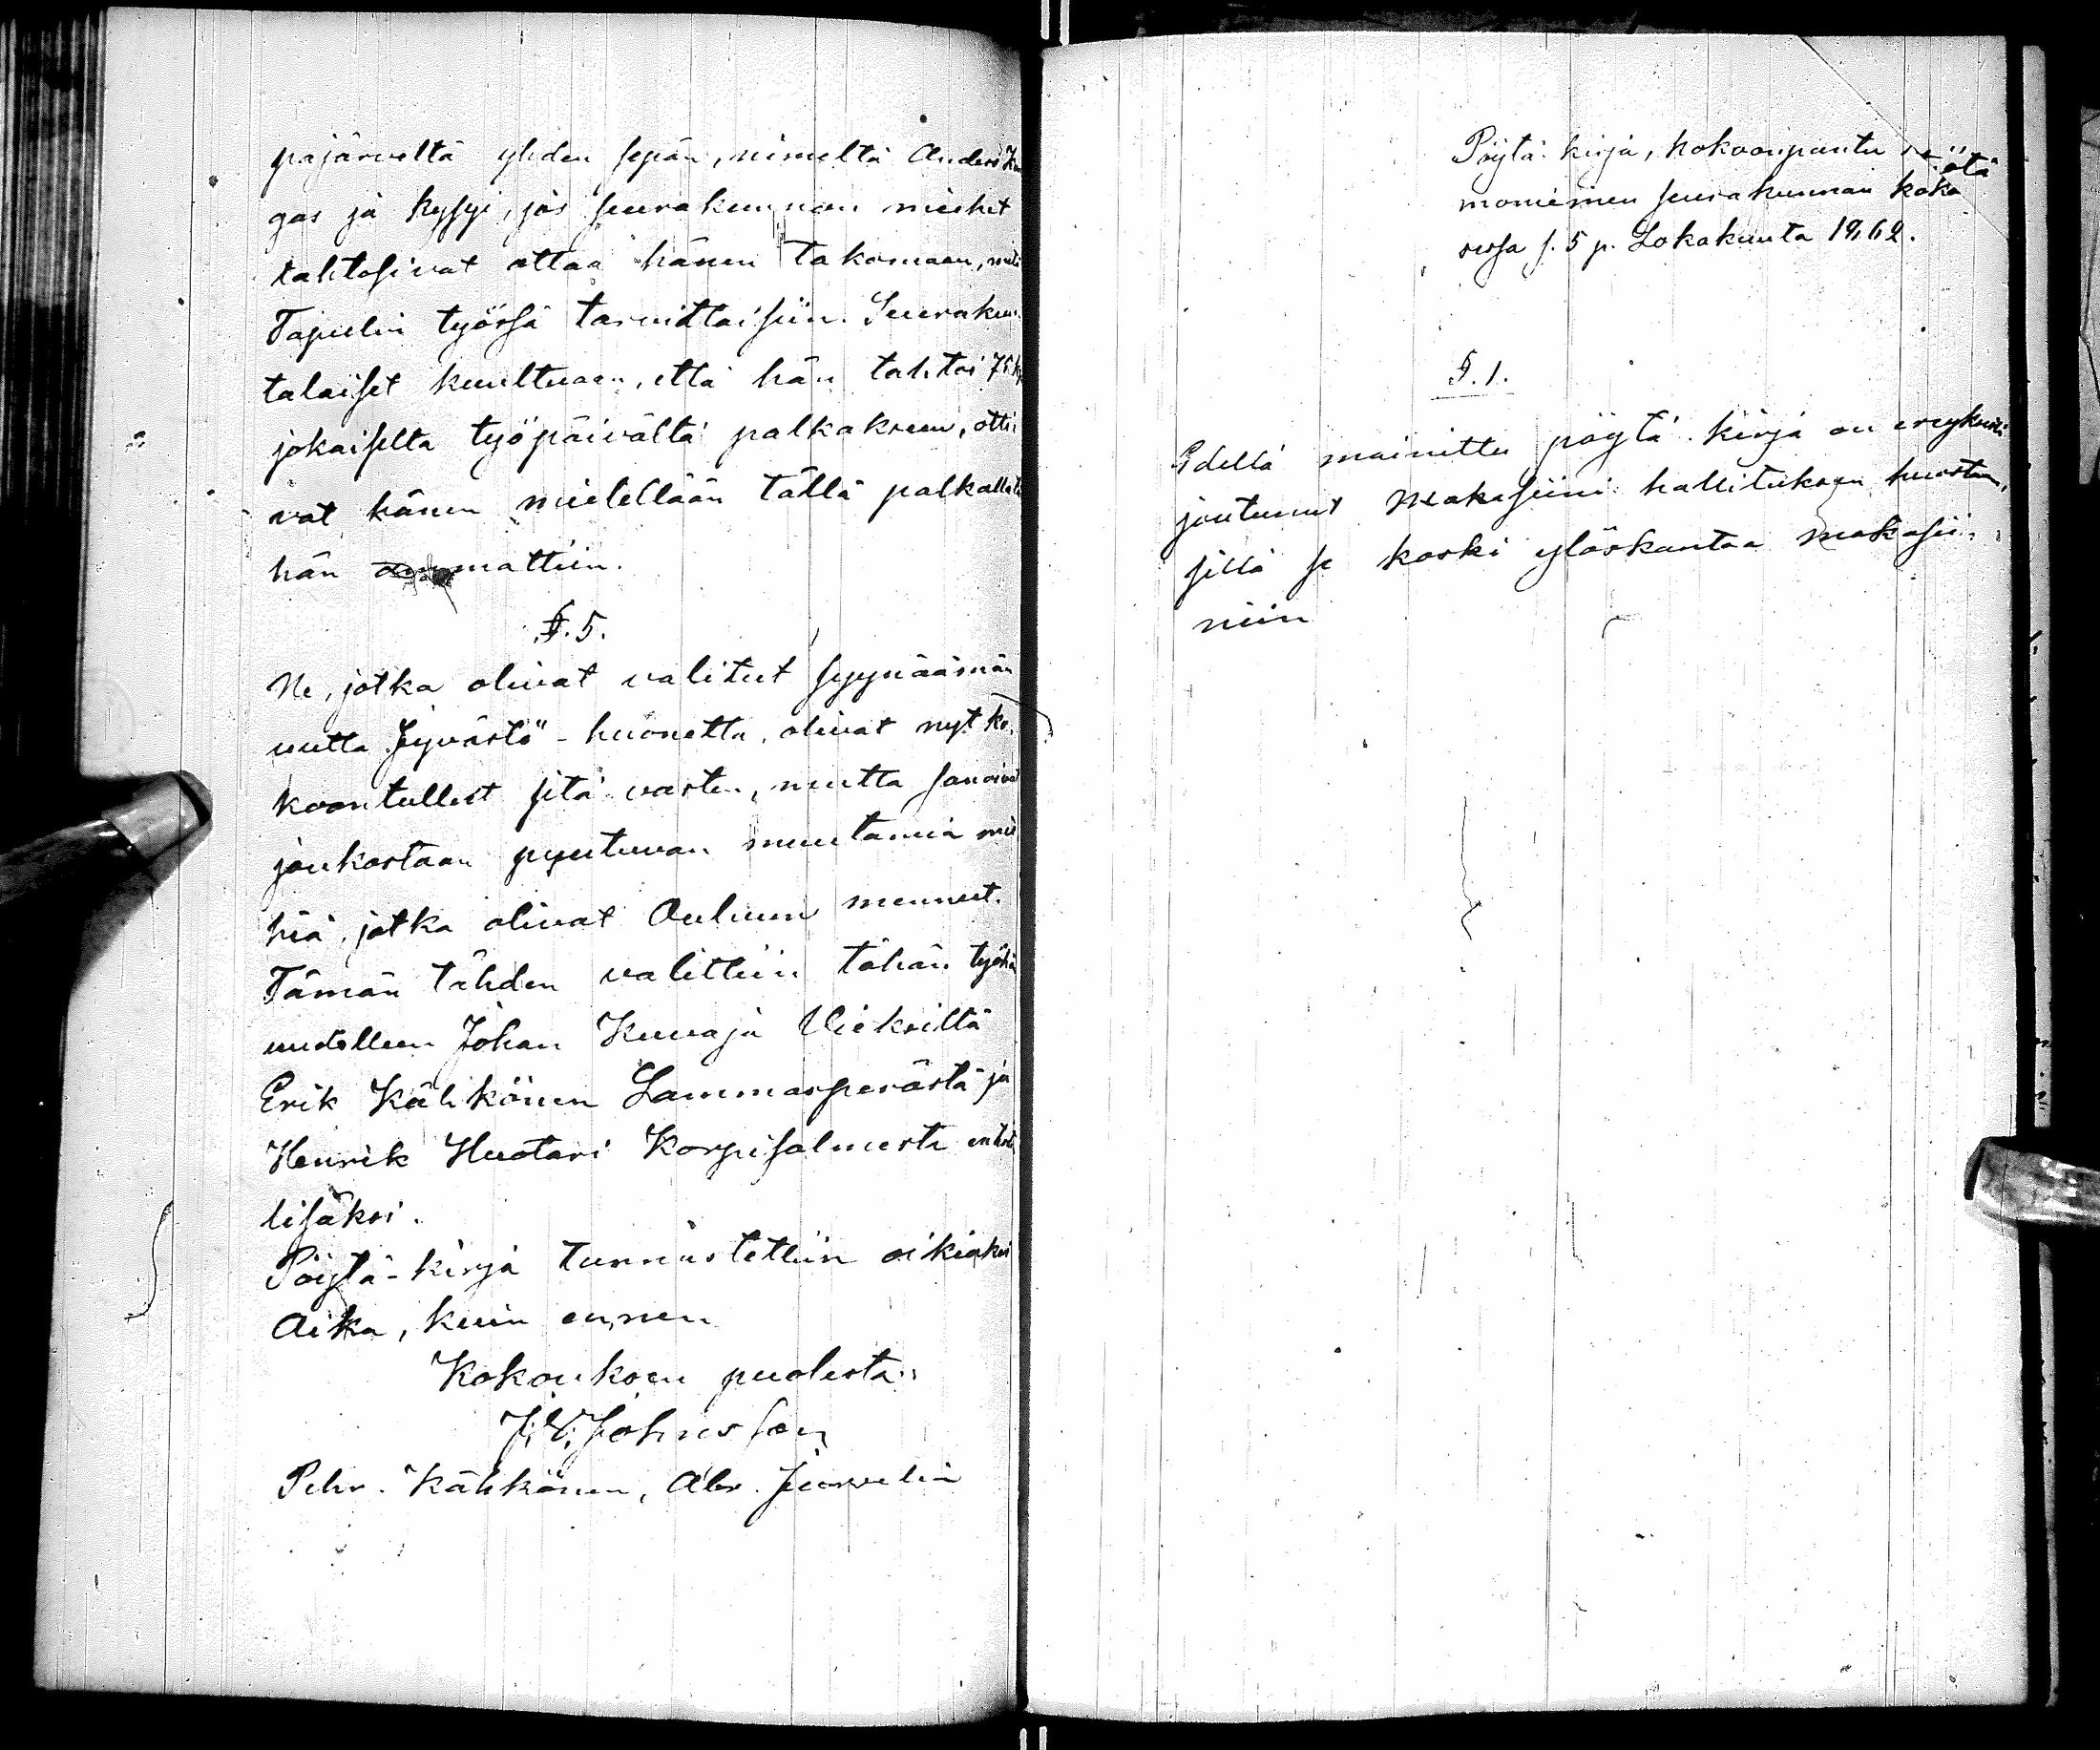 pajärveltä yhden sepän, nimeltä Anders
gas ja kysyi, jos seurakunnan miehet
tahtosivat ottaa hänen takomaan, mitä
Tapulin työssä tarvittaisiin. Seurakun-
talaiset kuultuaan, että hän tahtoi 75
jokaiselta työpäivältä palkakseen, otti-
vat hänen mielellään tällä palkalla
hän ammattiin.
§. 5.
Ne, jotka olivat valitut syynäämän
uutta Jyvästö-huonetta, olivat nyt ko-
koontullest sitä varten, mutta sanoivat
joukostaan puutuvan muutamia mie
hiä, jotka olivat Ouluun mennut.
Tämän tähden valittiin tähän työhä
uudelleen Johan Kuvaja Vieksiltä
Erik Kähkönen Lammasperästä ja
Henrik Huotari Korpisalmesta
lisäksi.
Pöytä-kirja tunnustettiin oikiaksi
Aika, kuin ennen
Kokouksen puolesta:
J. V. Johnsson
Pehr. Kähkönen, Abr. Juvelin
Pöytä-kirja, kokoonpantu
moniemen seurakunnan koko
ussa s. 5 p. Lokakuuta 1862.
§. 1.
Edellä mainittu pöytä-kirja on
joutunut Makasiini hallituksen huostan,
sillä se koski ylöskantaa makasii-
niin